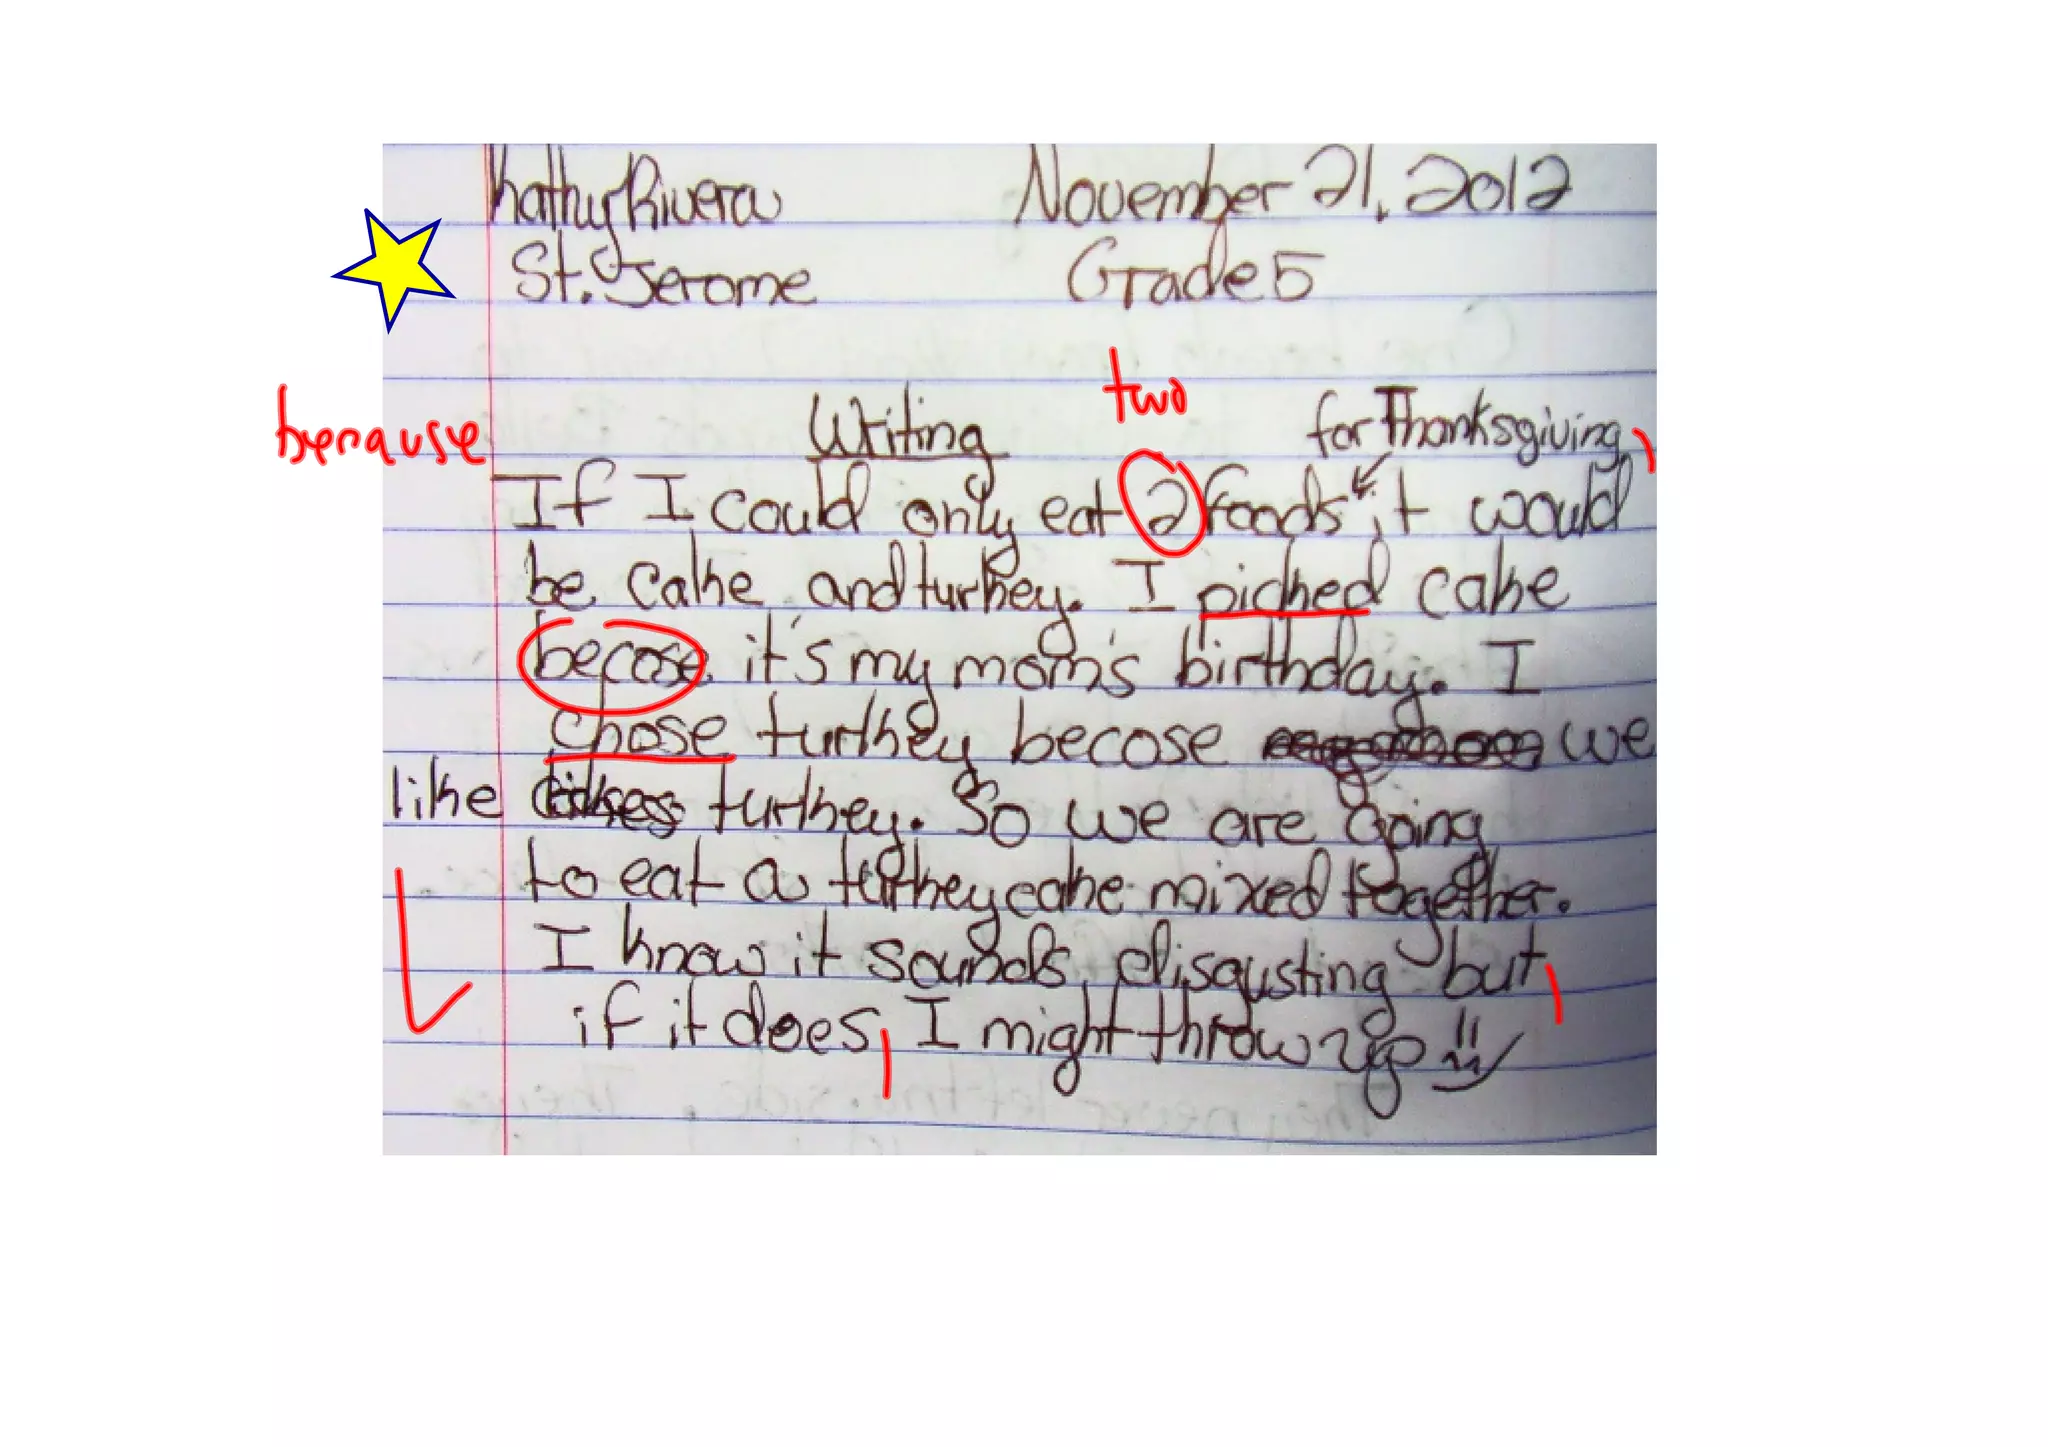 Kathy Rivera November 21, 2012
St. Jerome Grade 5
two
because Writing for Thanksgiving,
If I could only eat 2 foods it would
be cake and turkey. I picked cake
becose it's my mom's birthday. I
chose turkey becose we
like turkey. So we are Going
to eat a turkey cake mixed together.
I know it sounds disgusting but,
if it does, I might throw up